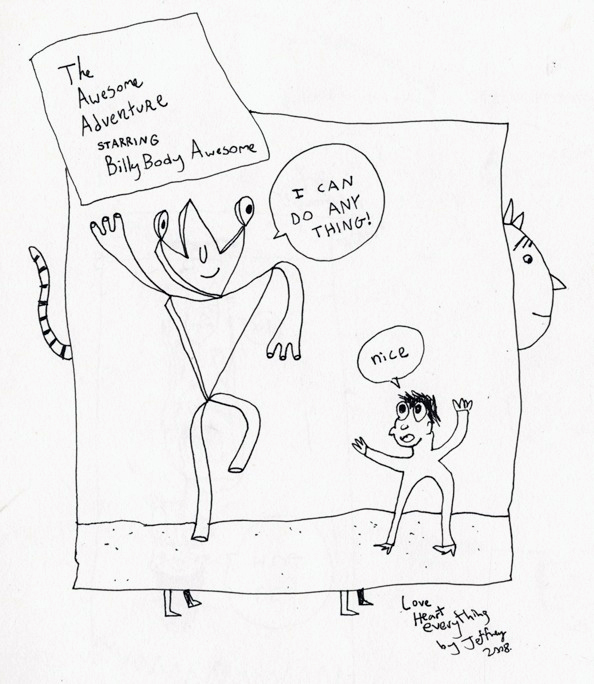 The
Awesome
Adventure
STARRING
BillyBody Awesome
I CAN
DO ANY
THING!
nice
Love
Heart
everything
by Jeffrey
2008.